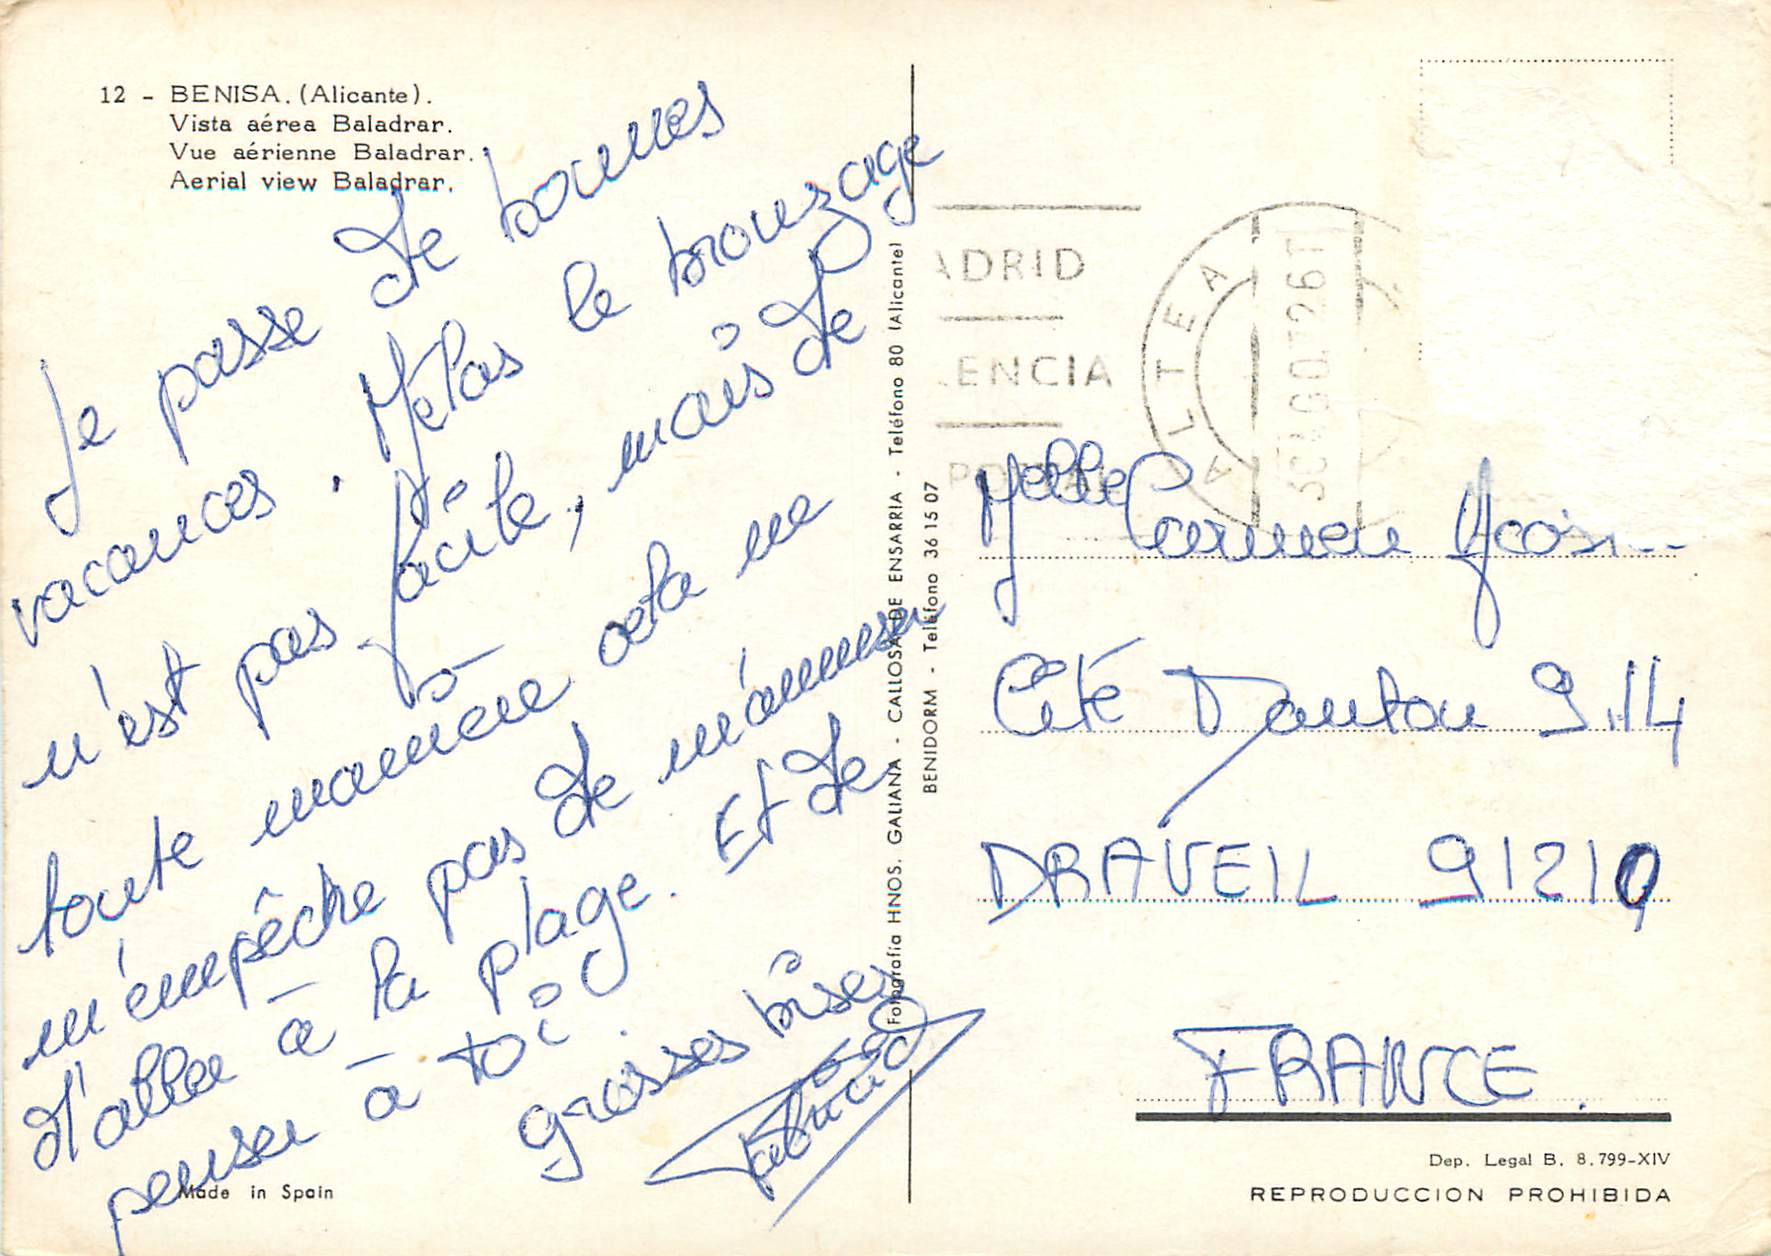 12 - BENISA. (Alicante).
Vista aérea Baladrar.
Vue aérienne Baladrar.
Aerial view Baladrar.
Je passe de bonnes
vacances. Hélas le bronzage
n'est pas facile, mais de
toute manière cela ne
m'empêche pas de m'ammuser
d'aller à la plage. Et de
penser à toi.
grosses bises
Patricia
Made in Spain
Fotografía HNOS. GALIANA - CALLOSA DE ENSARRIA - Teléfono 80 (Alicante)
BENIDORM - Teléfono 36 15 07
ADRID
ENCIA
ALTEA
Melle Carmen
Cité Danton 9.14
DRAVEIL 91210
FRANCE.
Dep. Legal B. 8.799-XIV
REPRODUCCION PROHIBIDA